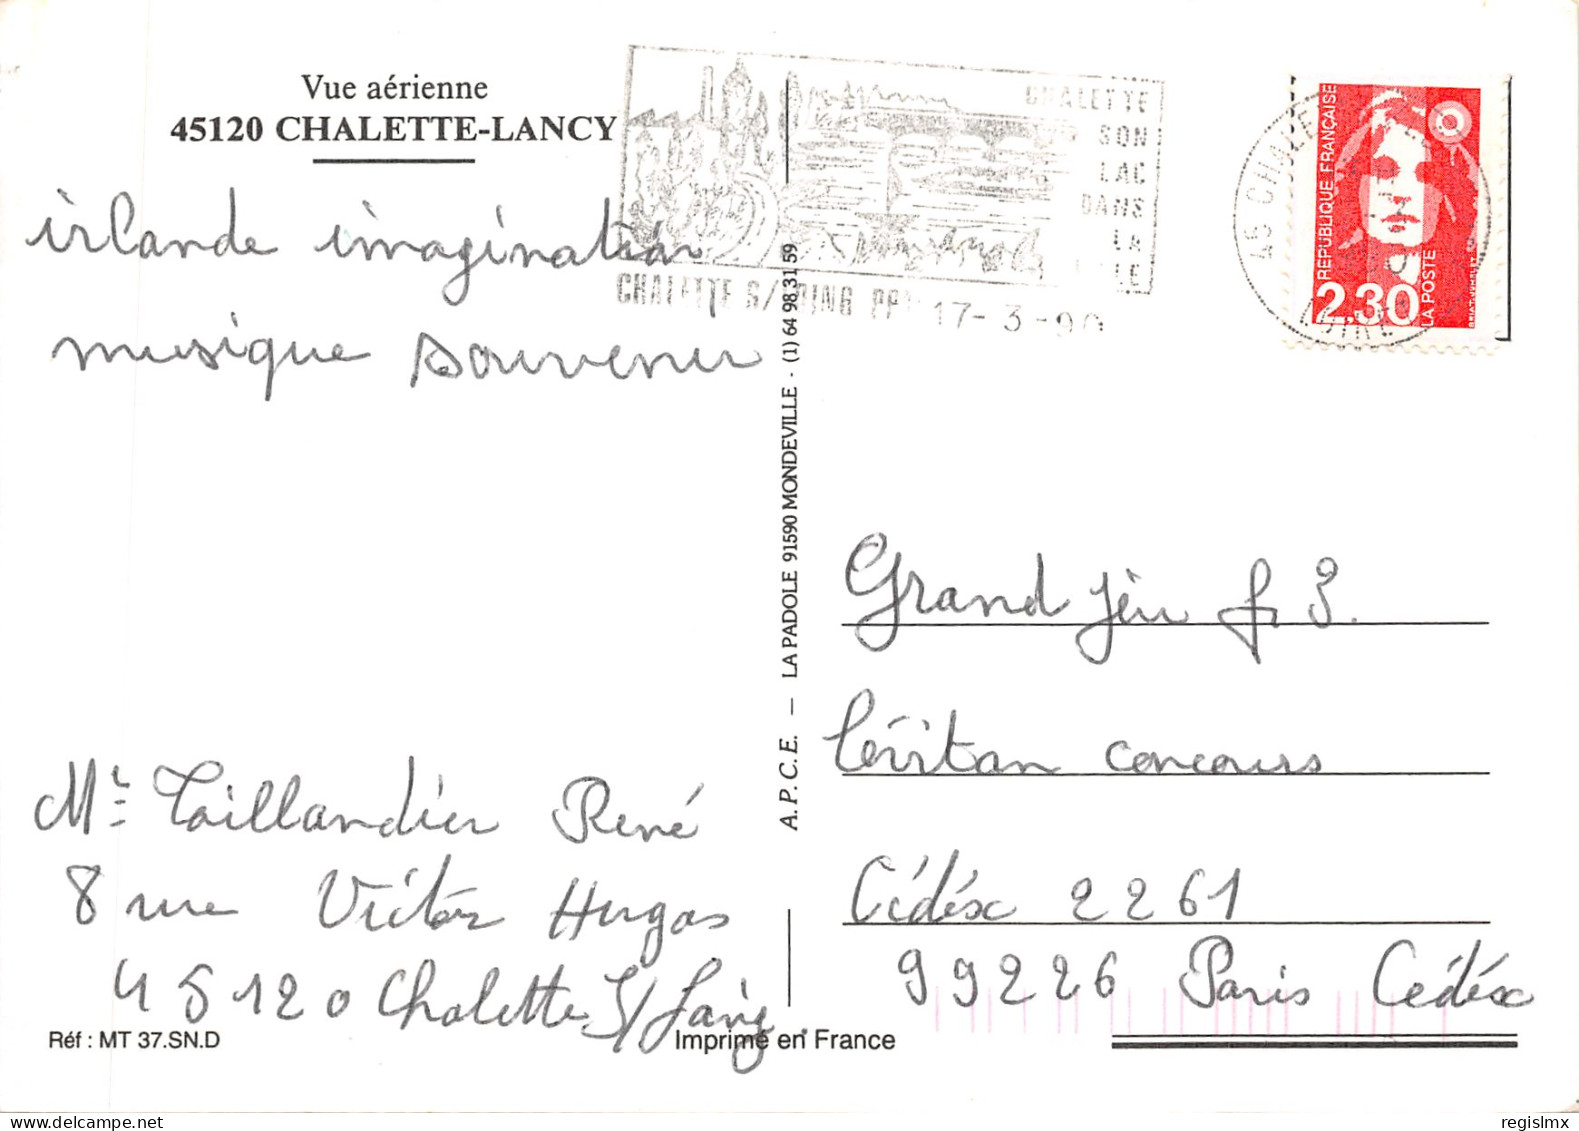 Vue aérienne
45120 CHALETTE-LANCY
irlande imagination
musique souvenir
Mr Taillandier René
8 rue Victor Hugas
45120 Chalette S/Loing
Réf : MT 37.SN.D
Imprimé en France
A.P.C.E. — LA PADOLE 91590 MONDEVILLE - (1) 64 98 31 59
CHALETTE
SON
LAC
DANS
LA
CHALETTE S/LOING PPL 17-3-90
45 CHALETTE
LOIRET
RÉPUBLIQUE FRANÇAISE
2,30
LA POSTE
Grand jeu fr 3.
Lévitan concours
Cédéx 2261
99226 Paris Cédéx
regislmx